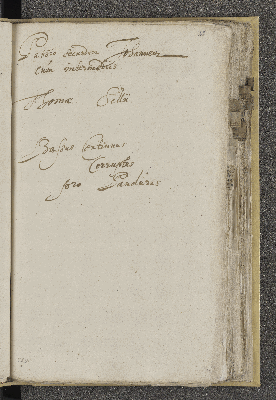 Passio secundum Johannem
cum intermediis
Thomæ Sellii
Bassus Continuus
Correptus
pro Panduris